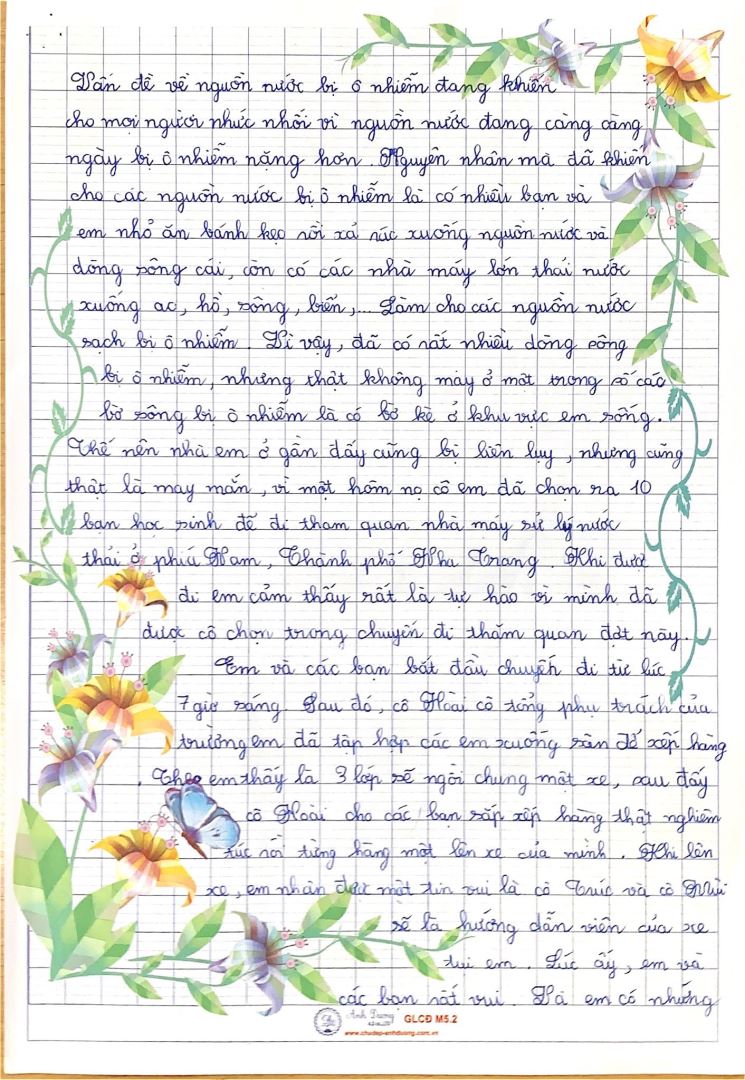 Vấn đề về nguồn nước bị ô nhiễm đang khiến
cho mọi người nhức nhối vì nguồn nước đang càng càng
ngày bị ô nhiễm nặng hơn. Nguyên nhân mà đã khiến
cho các nguồn nước bị ô nhiễm là có nhiều bạn và
em nhỏ ăn bánh kẹo rồi xả rác xuống nguồn nước và
dòng sông cái, còn có các nhà máy lớn thải nước
xuống ao, hồ, sông, biển,... Làm cho các nguồn nước
sạch bị ô nhiễm. Vì vậy, đã có rất nhiều dòng sông
bị ô nhiễm, nhưng thật không máy ở một trong số các
bờ sông bị ô nhiễm là có bờ kè ở khu vực em sống.
Thế nên nhà em ở gần đấy cũng bị liên lụy, nhưng cũng
thật là may mắn, vì một hôm nọ cô em đã chọn ra 10
bạn học sinh để đi tham quan nhà máy sử lý nước
thải ở phiá Nam, Thành phố Nha Trang. Khi được
đi em cảm thấy rất là tự hào vì mình đã
được cô chọn trong chuyến đi thăm quan đợt này.
Em và các bạn bắt đầu chuyến đi từ lúc
7 giờ sáng. Sau đó, cô Hoài cô tổng phụ trách của
trường em đã tập hợp các em xuống sân để xếp hàng
. Theo em thấy là 3 lớp sẽ ngồi chung một xe, sau đấy
cô Hoài cho các bạn sắp xếp hàng thật nghiêm
túc rồi từng hàng một lên xe của mình. Khi lên
xe, em nhận được một tin vui là cô Trúc và cô
sẽ là hướng dẫn viên của xe
tụi em. Lúc ấy, em và
các bạn rất vui. Và em có những
Ánh Dương
GLCĐ M5.2
www.chudep-anhduong.com.vn